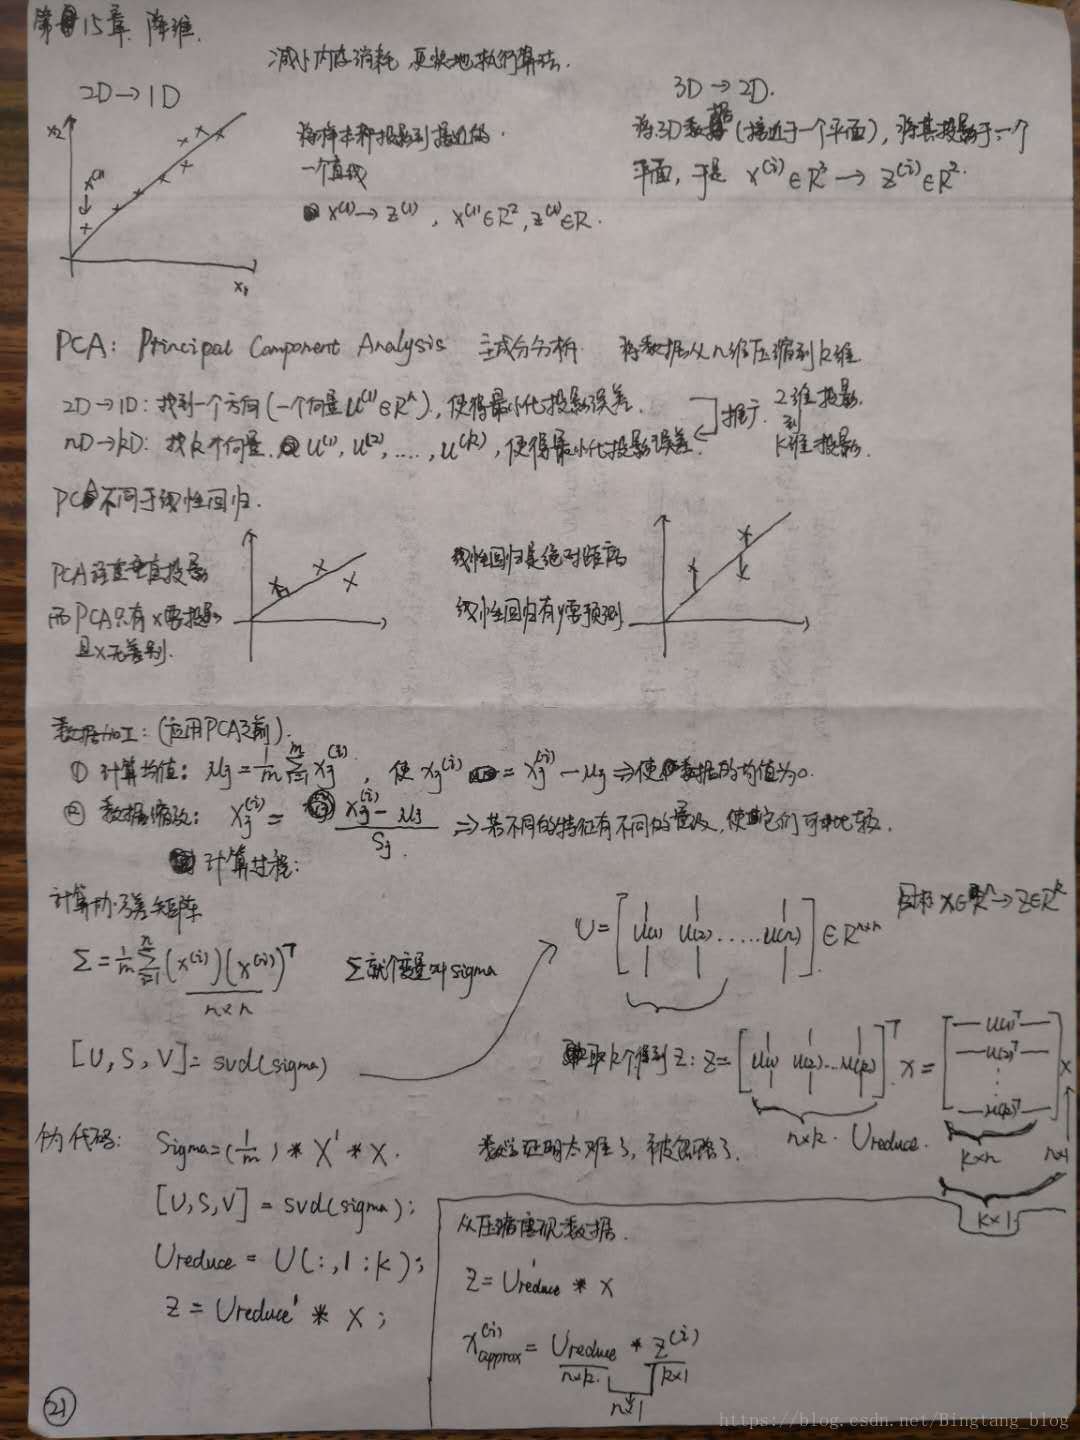 第15章 降维.
减小内存消耗,更快地执行算法.
2D→1D
将样本都投影到接近的
一个直线
x⁽¹⁾→z⁽¹⁾, x⁽¹⁾∈R², z⁽¹⁾∈R.
x₂
x⁽¹⁾
x₁
3D→2D.
将3D数据(接近于一个平面),将其投影于一个
平面,于是 x⁽ⁱ⁾∈R³→z⁽ⁱ⁾∈R².
PCA: Principal Component Analysis 主成分分析. 将数据从n维压缩到k维.
2D→1D: 找到一个方向(一个向量u⁽¹⁾∈Rⁿ),使得最小化投影误差.
nD→kD: 找k个向量. u⁽¹⁾, u⁽²⁾, ...., u⁽ᵏ⁾,使得最小化投影误差.
推广. 2维投影.
到
k维投影.
PCA不同于线性回归.
PCA 垂直投影
而PCA只有x要投影
且x无差别.
线性回归是绝对距离
线性回归有y要预测
数据加工:(应用PCA之前).
① 计算均值: μj = 1/m Σ(i=1..m) xj⁽ⁱ⁾, 使 xj⁽ⁱ⁾ = xj⁽ⁱ⁾ − μj ⇒使数据的均值为0.
② 数据缩放: xj⁽ⁱ⁾ = (xj⁽ⁱ⁾ − μj) / Sj ⇒若不同的特征有不同的量级,使其它们可比较.
计算过程:
计算协方差矩阵
Σ = 1/m Σ(i=1..n) (x⁽ⁱ⁾)(x⁽ⁱ⁾)ᵀ
n×n
Σ就个变量叫sigma
[U, S, V] = svd(sigma)
U = [u(1) u(2) ...... u(n)] ∈ Rⁿˣⁿ.
目标 x∈Rⁿ→z∈Rᵏ
取k个得到z: z = [u(1) u(2) ... u(k)]ᵀ x = [—u(1)ᵀ— —u(2)ᵀ— ⋮ —u(k)ᵀ—] x
n×k. Ureduce. k×n n×1
k×1
伪代码:
Sigma = (1/m) * X' * X.
[U,S,V] = svd(sigma);
Ureduce = U(:,1:k);
z = Ureduce' * x;
数学证明太难了,被忽略了.
从压缩重现数据.
z = Ureduce' * x
x⁽ⁱ⁾approx = Ureduce * z⁽ⁱ⁾
n×k. k×1
n×1
21
https://blog.csdn.net/Bingtang_blog